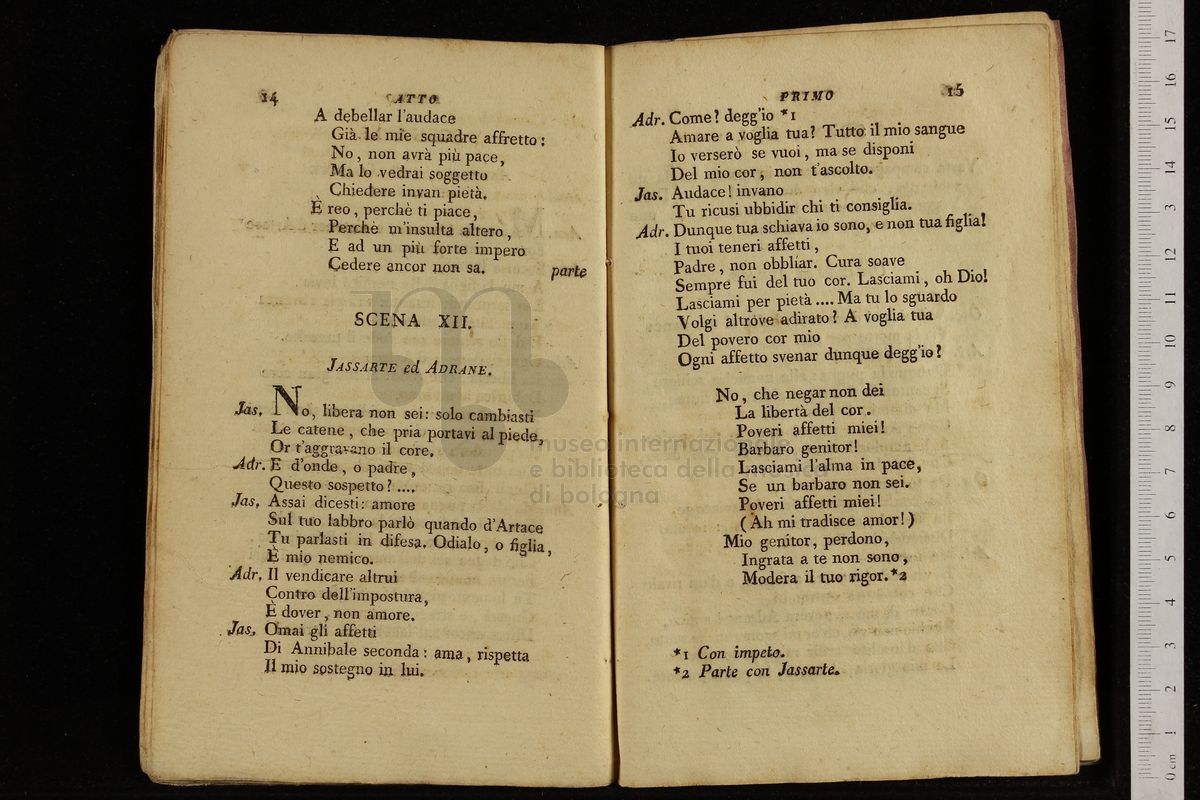 14
ATTO
A debellar l'audace
Già le mie squadre affretto:
No, non avrà più pace,
Ma lo vedrai soggetto
Chiedere invan pietà.
È reo, perchè ti piace,
Perchè m'insulta altero,
E ad un più forte impero
Cedere ancor non sa. parte
SCENA XII.
JASSARTE ed ADRANE.
Jas. No, libera non sei: solo cambiasti
Le catene, che pria portavi al piede,
Or t'aggravano il core.
Adr. E d'onde, o padre,
Questo sospetto?....
Jas. Assai dicesti: amore
Sul tuo labbro parlò quando d'Artace
Tu parlasti in difesa. Odialo, o figlia,
È mio nemico.
Adr. Il vendicare altrui
Contro dell'impostura,
È dover, non amore.
Jas. Omai gli affetti
Di Annibale seconda: ama, rispetta
Il mio sostegno in lui.
PRIMO
15
Adr. Come? degg'io *1
Amare a voglia tua? Tutto il mio sangue
Io verserò se vuoi, ma se disponi
Del mio cor, non t'ascolto.
Jas. Audace! invano
Tu ricusi ubbidir chi ti consiglia.
Adr. Dunque tua schiava io sono, e non tua figlia!
I tuoi teneri affetti,
Padre, non obbliar. Cura soave
Sempre fui del tuo cor. Lasciami, oh Dio!
Lasciami per pietà.... Ma tu lo sguardo
Volgi altrove adirato? A voglia tua
Del povero cor mio
Ogni affetto svenar dunque degg'io?
No, che negar non dei
La libertà del cor.
Poveri affetti miei!
Barbaro genitor!
Lasciami l'alma in pace,
Se un barbaro non sei.
Poveri affetti miei!
(Ah mi tradisce amor!)
Mio genitor, perdono,
Ingrata a te non sono,
Modera il tuo rigor.*2
*1 Con impeto.
*2 Parte con Jassarte.
museo internazionale
e biblioteca della musica
di bologna
0 cm 1 2 3 4 5 6 7 8 9 10 11 12 13 14 15 16 17